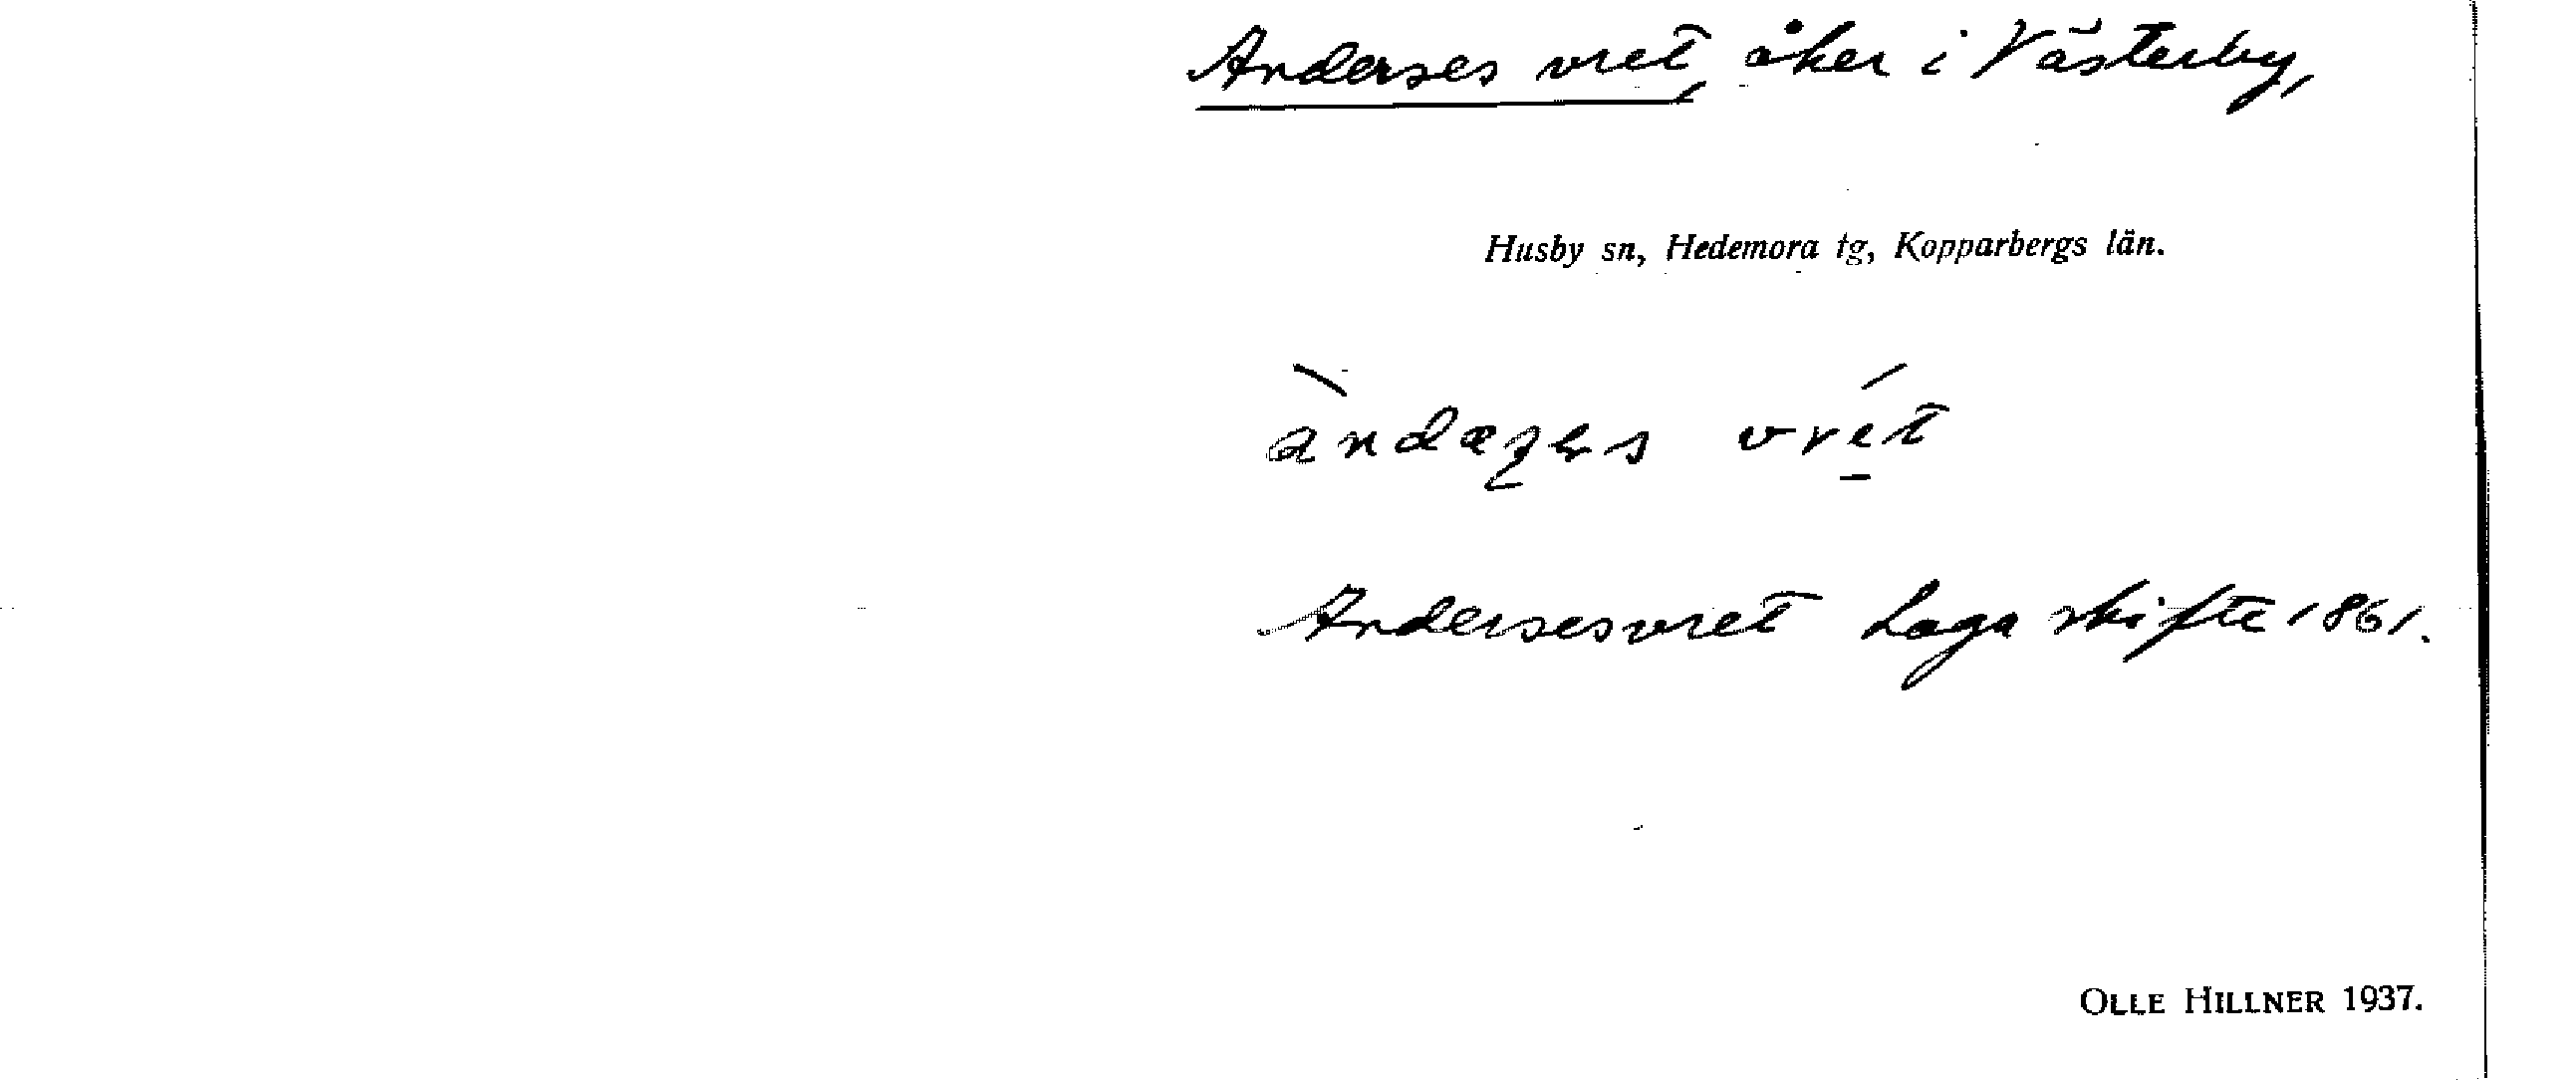 Anderses vret, åker i Västerby,
Husby sn, Hedemora tg, Kopparbergs län.
vret
Andersesvret Laga skifte 1861.
OLLE HILLNER 1937.